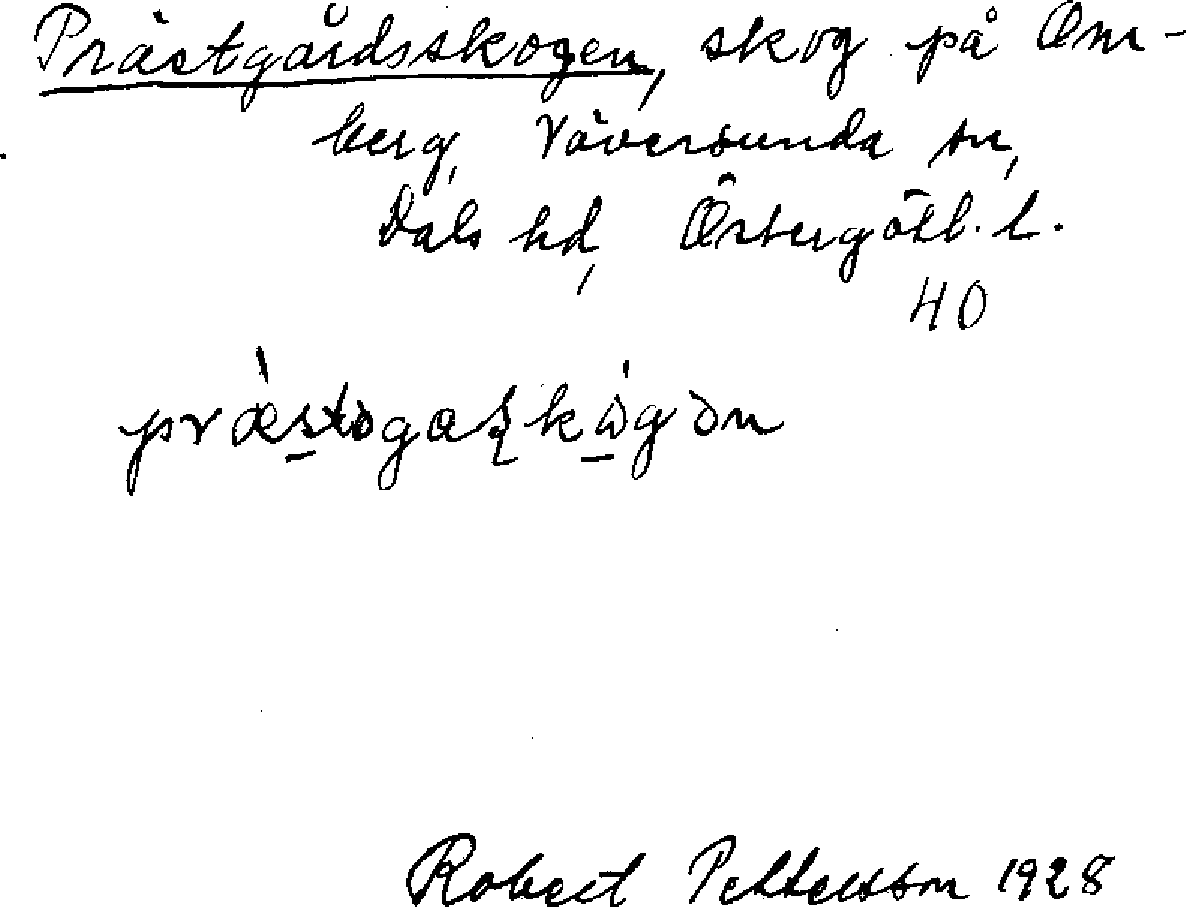 Prästgårdsskogen, skog på Om-
berg, Väversunda sn,
Dals hd, Östergötl. l.
40
præstəgaskογən
Robert Pettersson 1928